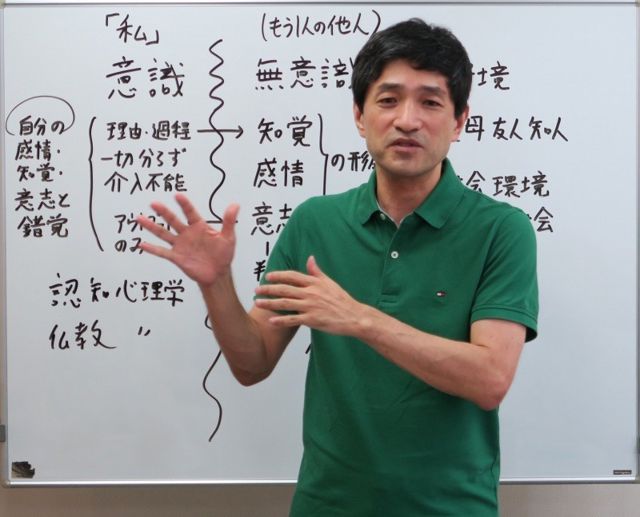 「私」
意識
自分の
感情・
知覚・
意志と
錯覚
理由・過程
一切分らず
介入不能
のみ
認知心理学
仏教 〃
(もう1人の他人)
無意識
知覚
感情
意志
の形
境
母 友人知人
環境
会